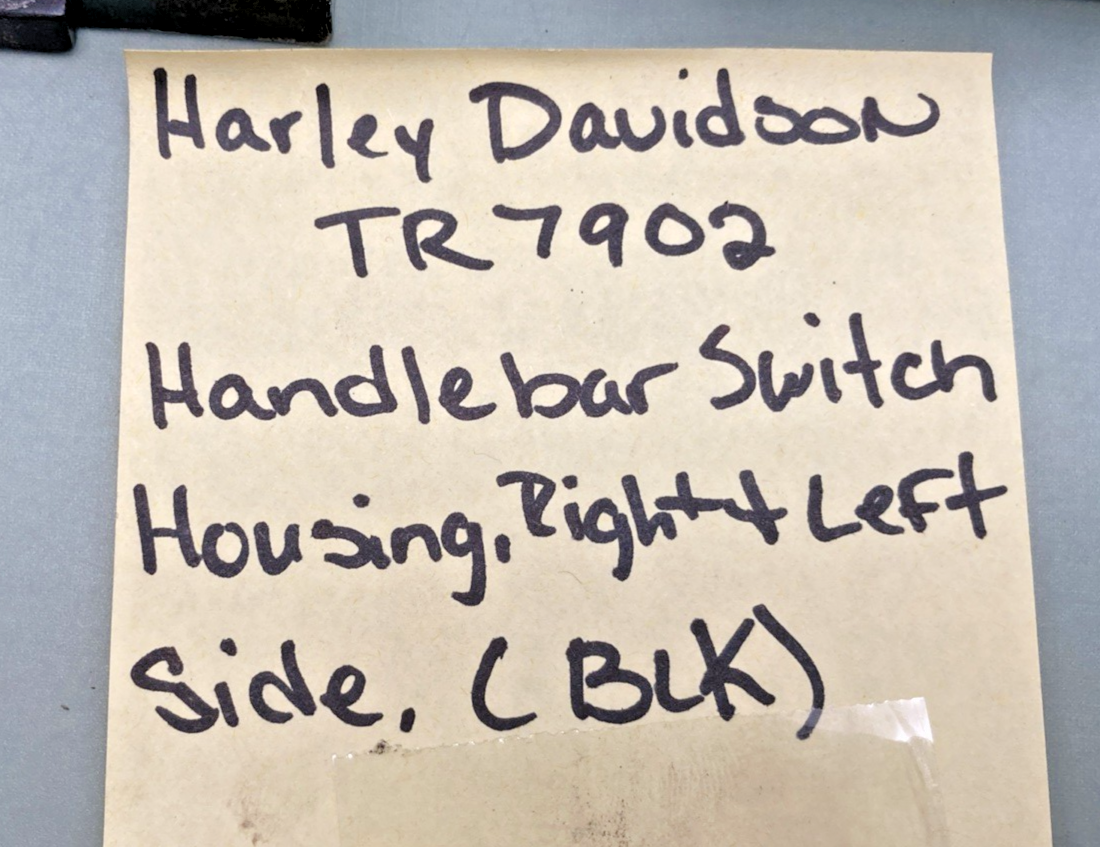 Harley Davidson
TR7902
Handlebar Switch
Housing, Right & Left
Side. (BLK)